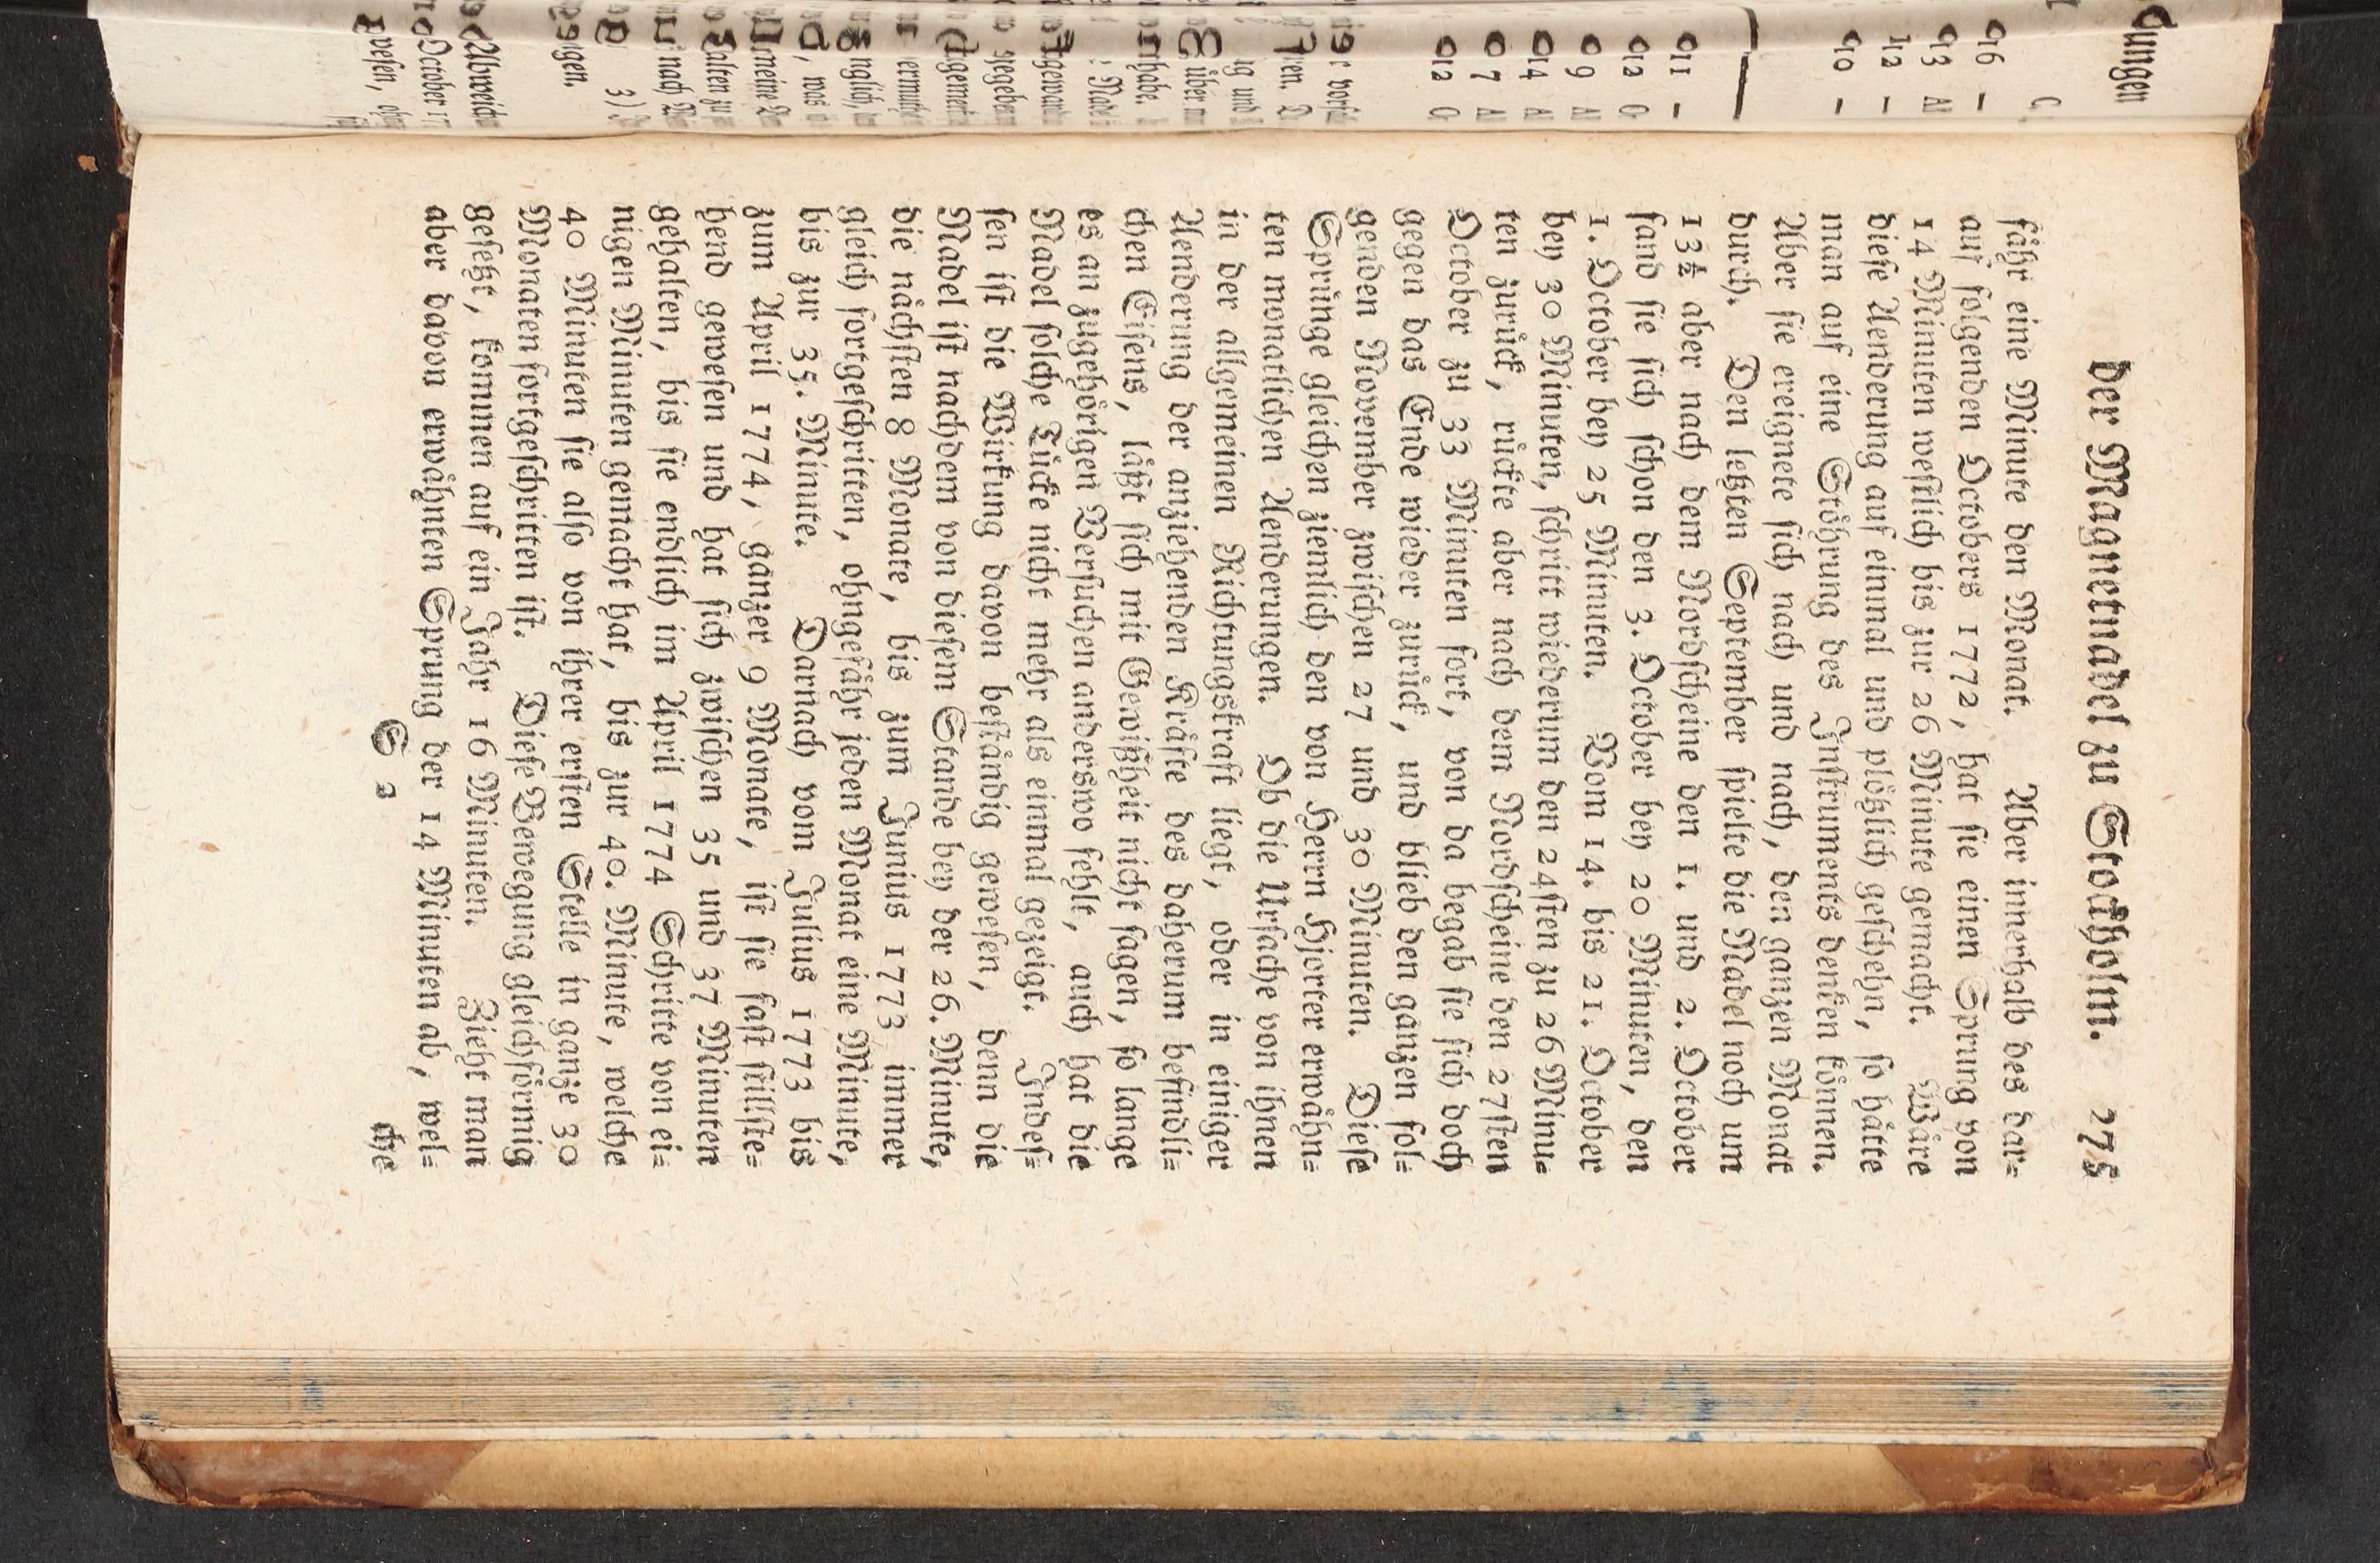 der Magnetnadel zu Stockholm. 275
fähr eine Minute den Monat. Aber innerhalb des dar=
auf folgenden Octobers 1772, hat sie einen Sprung von
14 Minuten westlich bis zur 26 Minute gemacht. Wäre
diese Aenderung auf einmal und plötzlich geschehn, so hätte
man auf eine Stöhrung des Instruments denken können.
Aber sie ereignete sich nach und nach, den ganzen Monat
durch. Den letzten September spielte die Nadel noch um
13½ aber nach dem Nordscheine den 1. und 2. October
fand sie sich schon den 3. October bey 20 Minuten, den
1. October bey 25 Minuten. Vom 14. bis 21. October
bey 30 Minuten, schritt wiederum den 24sten zu 26 Minu=
ten zurück, rückte aber nach dem Nordscheine den 27sten
October zu 33 Minuten fort, von da begab sie sich doch
gegen das Ende wieder zurück, und blieb den ganzen fol=
genden November zwischen 27 und 30 Minuten. Diese
Sprünge gleichen ziemlich den von Herrn Hiorter erwähn=
ten monatlichen Aenderungen. Ob die Ursache von ihnen
in der allgemeinen Richtungskraft liegt, oder in einiger
Aenderung der anziehenden Kräfte des daherum befindli=
chen Eisens, läßt sich mit Gewißheit nicht sagen, so lange
es an zugehörigen Versuchen anderswo fehlt, auch hat die
Nadel solche Tücke nicht mehr als einmal gezeigt. Indes=
sen ist die Wirkung davon beständig gewesen, denn die
Nadel ist nachdem von diesem Stande bey der 26. Minute,
die nächsten 8 Monate, bis zum Junius 1773 immer
gleich fortgeschritten, ohngefähr jeden Monat eine Minute,
bis zur 35. Minute. Darnach vom Julius 1773 bis
zum April 1774, ganzer 9 Monate, ist sie fast stillste=
hend gewesen und hat sich zwischen 35 und 37 Minuten
gehalten, bis sie endlich im April 1774 Schritte von ei=
nigen Minuten gemacht hat, bis zur 40. Minute, welche
40 Minuten sie also von ihrer ersten Stelle in ganze 30
Monaten fortgeschritten ist. Diese Bewegung gleichförmig
gesetzt, kommen auf ein Jahr 16 Minuten. Zieht man
aber davon erwähnten Sprung der 14 Minuten ab, wel=
S 2 che